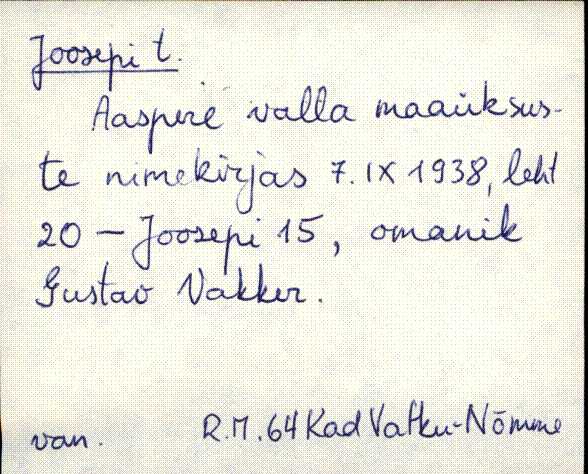 Joosepi t.
Aaspere valla maaüksus-
te nimekirjas 7.IX 1938, leht
20 - Joosepi 15, omanik
Gustav Vakker.
van. R.M. 64 Kad Vatku-Nõmme